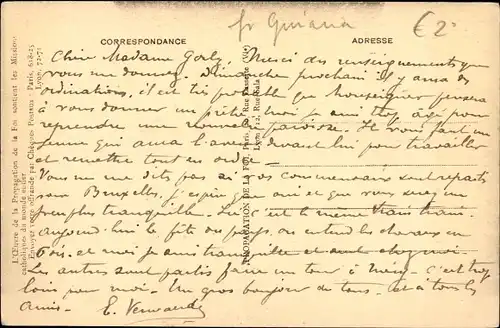 fr Guiana
€2-
CORRESPONDANCE
ADRESSE
Chère Madame Merci des renseignements que
vous me donnez. Dimanche prochain il y aura des
ordinations, il est très possible que Monseigneur pensera
à vous donner un prêtre. Moi, je suis trop âgé pour
reprendre une nouvelle paroisse. Il vous faut un
jeune qui aura l'avenir devant lui pour travailler
et remettre tout en ordre
Vous ne me dites pas si vos sont repartis
pour Bruxelles, j'espère que oui et que vous serez un
peu plus tranquille. Ici c'est le même train train.
aujourd'hui la fête du pays, on entend les chevaux en
bois, et moi je suis tranquille et seul chez moi.
Les autres sont partis faire un tour à c'est trop
loin pour moi. Un gros bonjour de tous et à tous les
amis. E.
L'Œuvre de la Propagation de la Foi soutient les Missions
catholiques du monde entier
Envoyer votre offrande par Chèques Postaux : Paris, 618-25
Lyon, 72-71
PROPAGATION DE LA FOI, Paris, 20, Rue Cassette (VIe)
Lyon, 12, Rue Sala